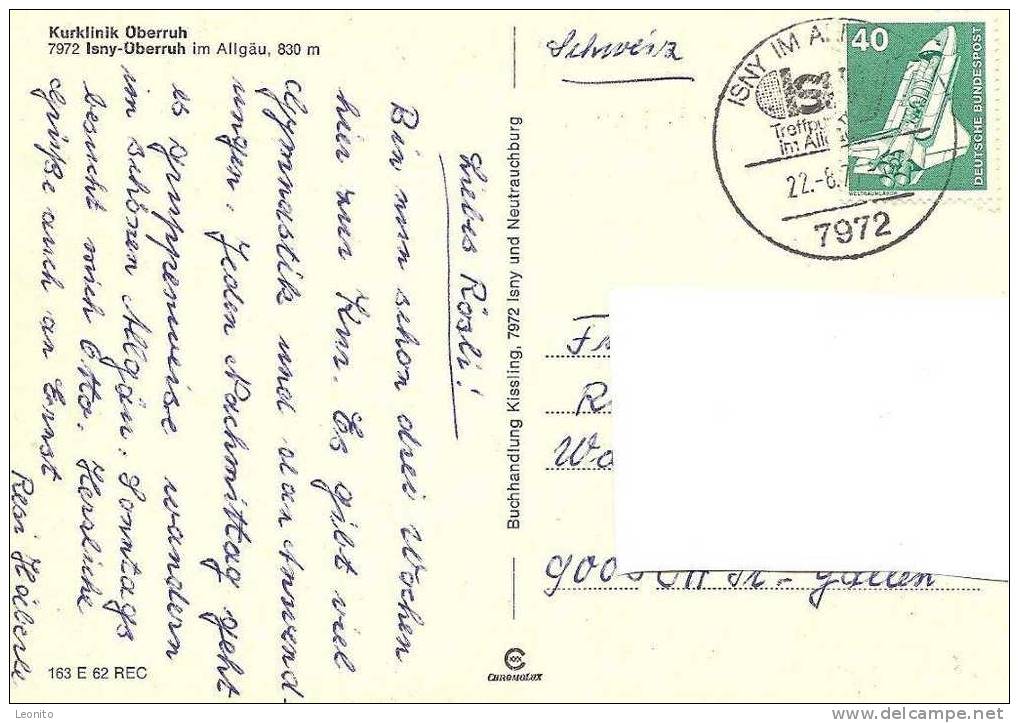 Kurklinik Überruh
7972 Isny-Überruh im Allgäu, 830 m
Liebes Rösli!
Bin nun schon drei Wochen
hier zur Kur. Es gibt viel
Gymnastik und dan Anwend-
ungen. Jeden Nachmittag geht
es Gruppenweise wandern
im schönen Allgäu. Sonntags
besucht mich Otto. Herzliche
Grüße auch an Ernst
Resi Haiberle
163 E 62 REC
Buchhandlung Kissling, 7972 Isny und Neutrauchburg
CHROMOLUX
Schweiz
ISNY IM
Treffpu
im Allg
22.-8.7
7972
40
DEUTSCHE BUNDESPOST
WELTRAUMLABOR
9000 CH St-Gallen
Leonito
www.delcampe.net